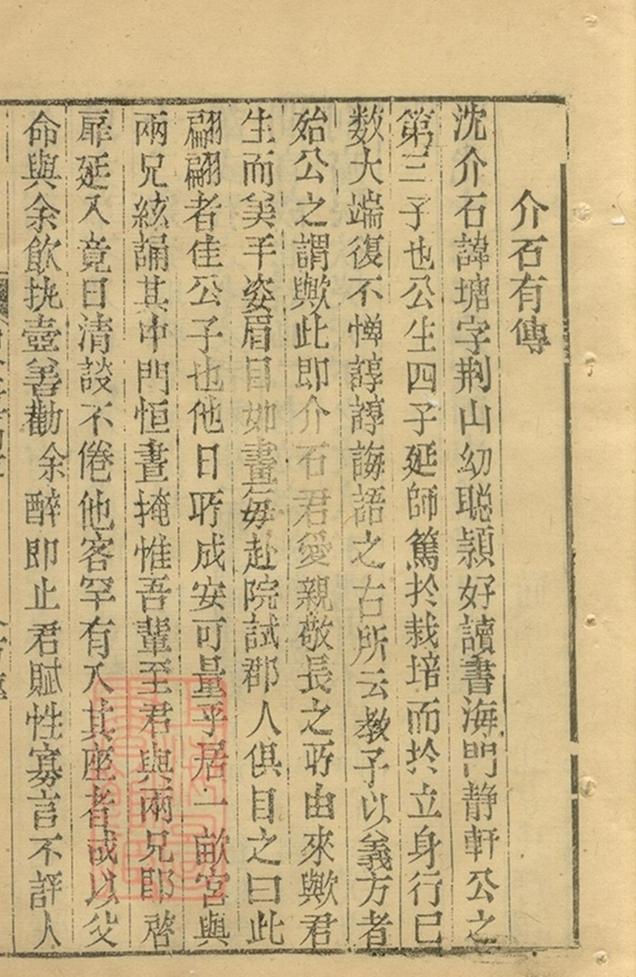 介石有傳
沈介石諱塘字荆山幼聡頴好讀書海門静軒公之
第三子也公生四子延師篤於栽培而於立身行已
数大端復不憚諄諄誨語之古所云教子以義方者
殆公之謂歟此即介石君愛親敬長之所由來歟君
生而美丰姿眉目如畫毎赴院試郡人俱目之曰此
翩翩者佳公子也他日所成安可量乎居一畝宮與
兩兄絃誦其中門恒晝掩惟吾輩至君與兩兄即啓
扉延入竟日清談不倦他客罕有入其座者或以父
命與余飲挑壺善勸余醉即止君賦性寡言不評人